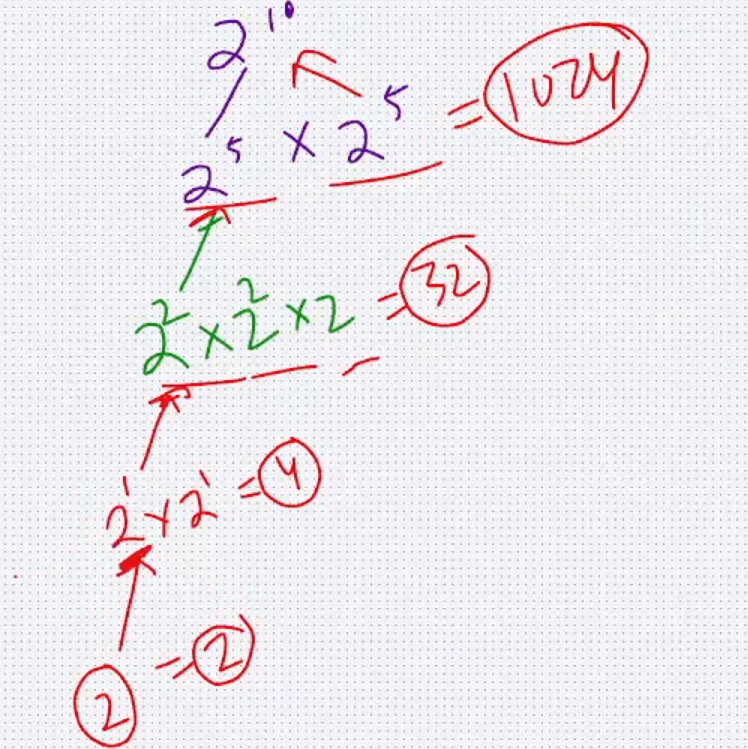 2¹⁰
2⁵ × 2⁵ = 1024
2² × 2² × 2 = 32
2¹ × 2¹ = 4
2 = 2